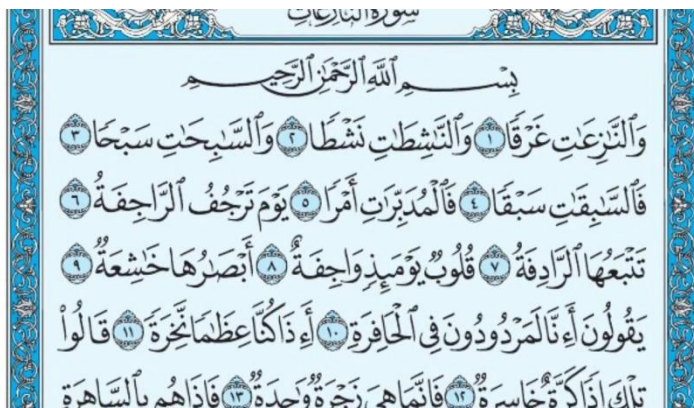 سُورَةُ النَّازِعَاتِ
بِسْمِ ٱللَّهِ ٱلرَّحْمَٰنِ ٱلرَّحِيمِ
وَٱلنَّٰزِعَٰتِ غَرْقًا ١ وَٱلنَّٰشِطَٰتِ نَشْطًا ٢ وَٱلسَّٰبِحَٰتِ سَبْحًا ٣
فَٱلسَّٰبِقَٰتِ سَبْقًا ٤ فَٱلْمُدَبِّرَٰتِ أَمْرًا ٥ يَوْمَ تَرْجُفُ ٱلرَّاجِفَةُ ٦
تَتْبَعُهَا ٱلرَّادِفَةُ ٧ قُلُوبٌ يَوْمَئِذٍ وَاجِفَةٌ ٨ أَبْصَٰرُهَا خَٰشِعَةٌ ٩
يَقُولُونَ أَءِنَّا لَمَرْدُودُونَ فِى ٱلْحَافِرَةِ ١٠ أَءِذَا كُنَّا عِظَٰمًا نَّخِرَةً ١١ قَالُوا۟
تِلْكَ إِذًا كَرَّةٌ خَاسِرَةٌ ١٢ فَإِنَّمَا هِىَ زَجْرَةٌ وَٰحِدَةٌ ١٣ فَإِذَا هُم بِٱلسَّاهِرَةِ